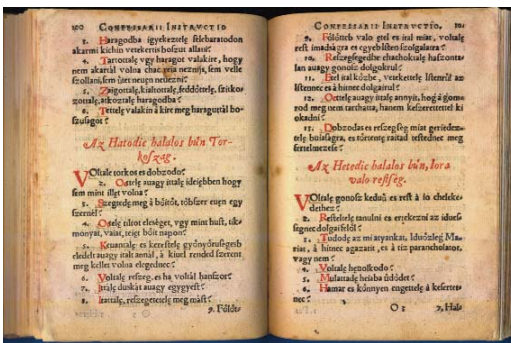 100 CONFESSARII INSTRVCTIO
3. Haragodba igyekeztelę felebaratodon
akarmi kichin veteķertis boszut allani?
4. Tartottalę vgy haragot valakire, hogy
nem akartál volna reá neznijs, sem velle
szollani, sem üzet neuen neuezni?
5. Zugottalę, kialtottalę, feddőttelę, szitko-
zottalę, atkoztalę haragodba?
6. Tettelę valakin à kire meg haraguttál bo-
szuságot?
Az Hatodic halalos bűn Tor-
koszag.
VOltalę torkos es dobzodo?
2. Ottelę auagy italę ideiében hogy
sem mint illet volna?
3. Szegtedę meg à bőitőt, tőbszer euen egy
szernél?
4. Ottelę tilot eleséget, vgy mint hust, tik-
monyat, vaiat, teiget bőit napon?
5. Keuantalę es kerestelę gyönyörüségesb
eledelt auagy italt annál, à kiuel rended szerent
meg kellet volna elegedned?
6. Voltalę reszeg, es ha voltál hanszor?
7. Italę duskát auagy egygyest?
8. Itattalę, reszegetettelę meg mást?
9. Főlőt-
CONFESSARII INSTRVCTIO. 101
9. Főlőtteb valo etel es ital miat, voltalę
rest imádságra es egyeb Isten szolgalatra?
10. Reszegsegedbe chachoktalę haszonta-
lan auagy gonosz dolgokrul?
11. Etel ital kőzbe, vetekettelę Istenrűl az
Istennec es à hitnec dolgairul?
12. Oettelę auagy ittalę annyit, hogy à gyom-
rod meg nem tarthatta, hanem keszeretettel ki
okadni?
13. Dobzodas es reszegség miat geriedez-
telę buiaságra, es tőrtentę raitad testednec meg
fertelmezése?
Az Hetedic halalos bűn, Iora
valo restség.
VOltalę gonosz keduű es rest à ió cheleke-
dethez?
2. Resteltelę tanulni es ertekezni az idues-
ségnec dolgairól?
3. Tudodę az mi atyankat, Iduőzleg Ma-
riat, à hitnec agazatit, es à tiz paranchollatot,
vagy nem?
4. Voltalę heiuolkodo?
5. Mulattadę hejába űdődet?
6. Hamar es kőnnyen engettelę à kesertet-
nec?
O 3 7. Hala